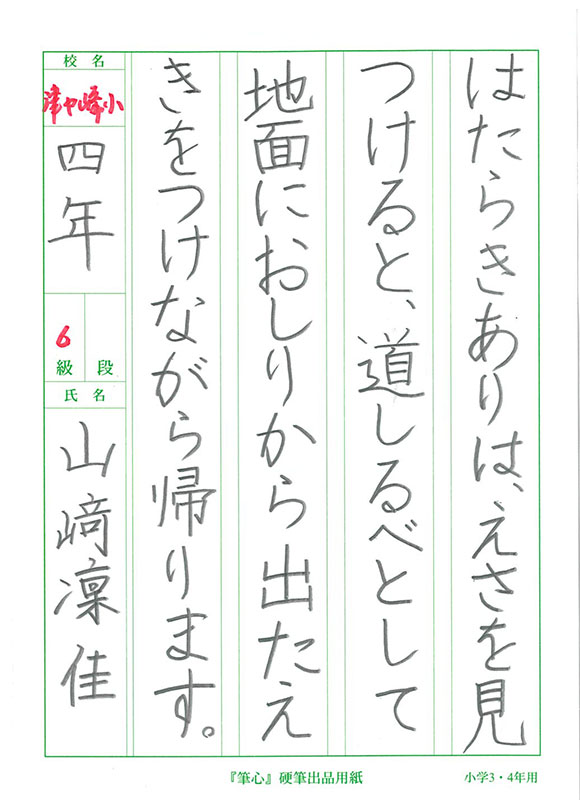 はたらきありは、えさを見
つけると、道しるべとして
地面におしりから出たえ
きをつけながら帰ります。
校名
津ヶ峰小
四年
6
級 段
氏名
山﨑凜佳
『筆心』硬筆出品用紙
小学3・4年用